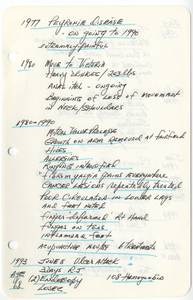 1977 Peyronie Disease
- on going to 1990
extremely painful
1980 Move to Victoria
Heavy Drinker / 263 lbs
Anal itch - ongoing
Beginnings of loss of movement
in Neck/Shoulders
1980-1990
Mitral Valve Prolapse
Growth on arm removed at
Hives
Allergies
Ruptured Navel
Fibromyalgia pains everywhere
Cancer lesions repeatedly treated
Poor circulation in lower legs
and feet noted
Finger deformed at Hand
Fungus on toes
Inflamed feet
Acupuncture
1993 Ulcer attack
3 Days RJ
Age
(2) Emergency 108 Hemoglobin